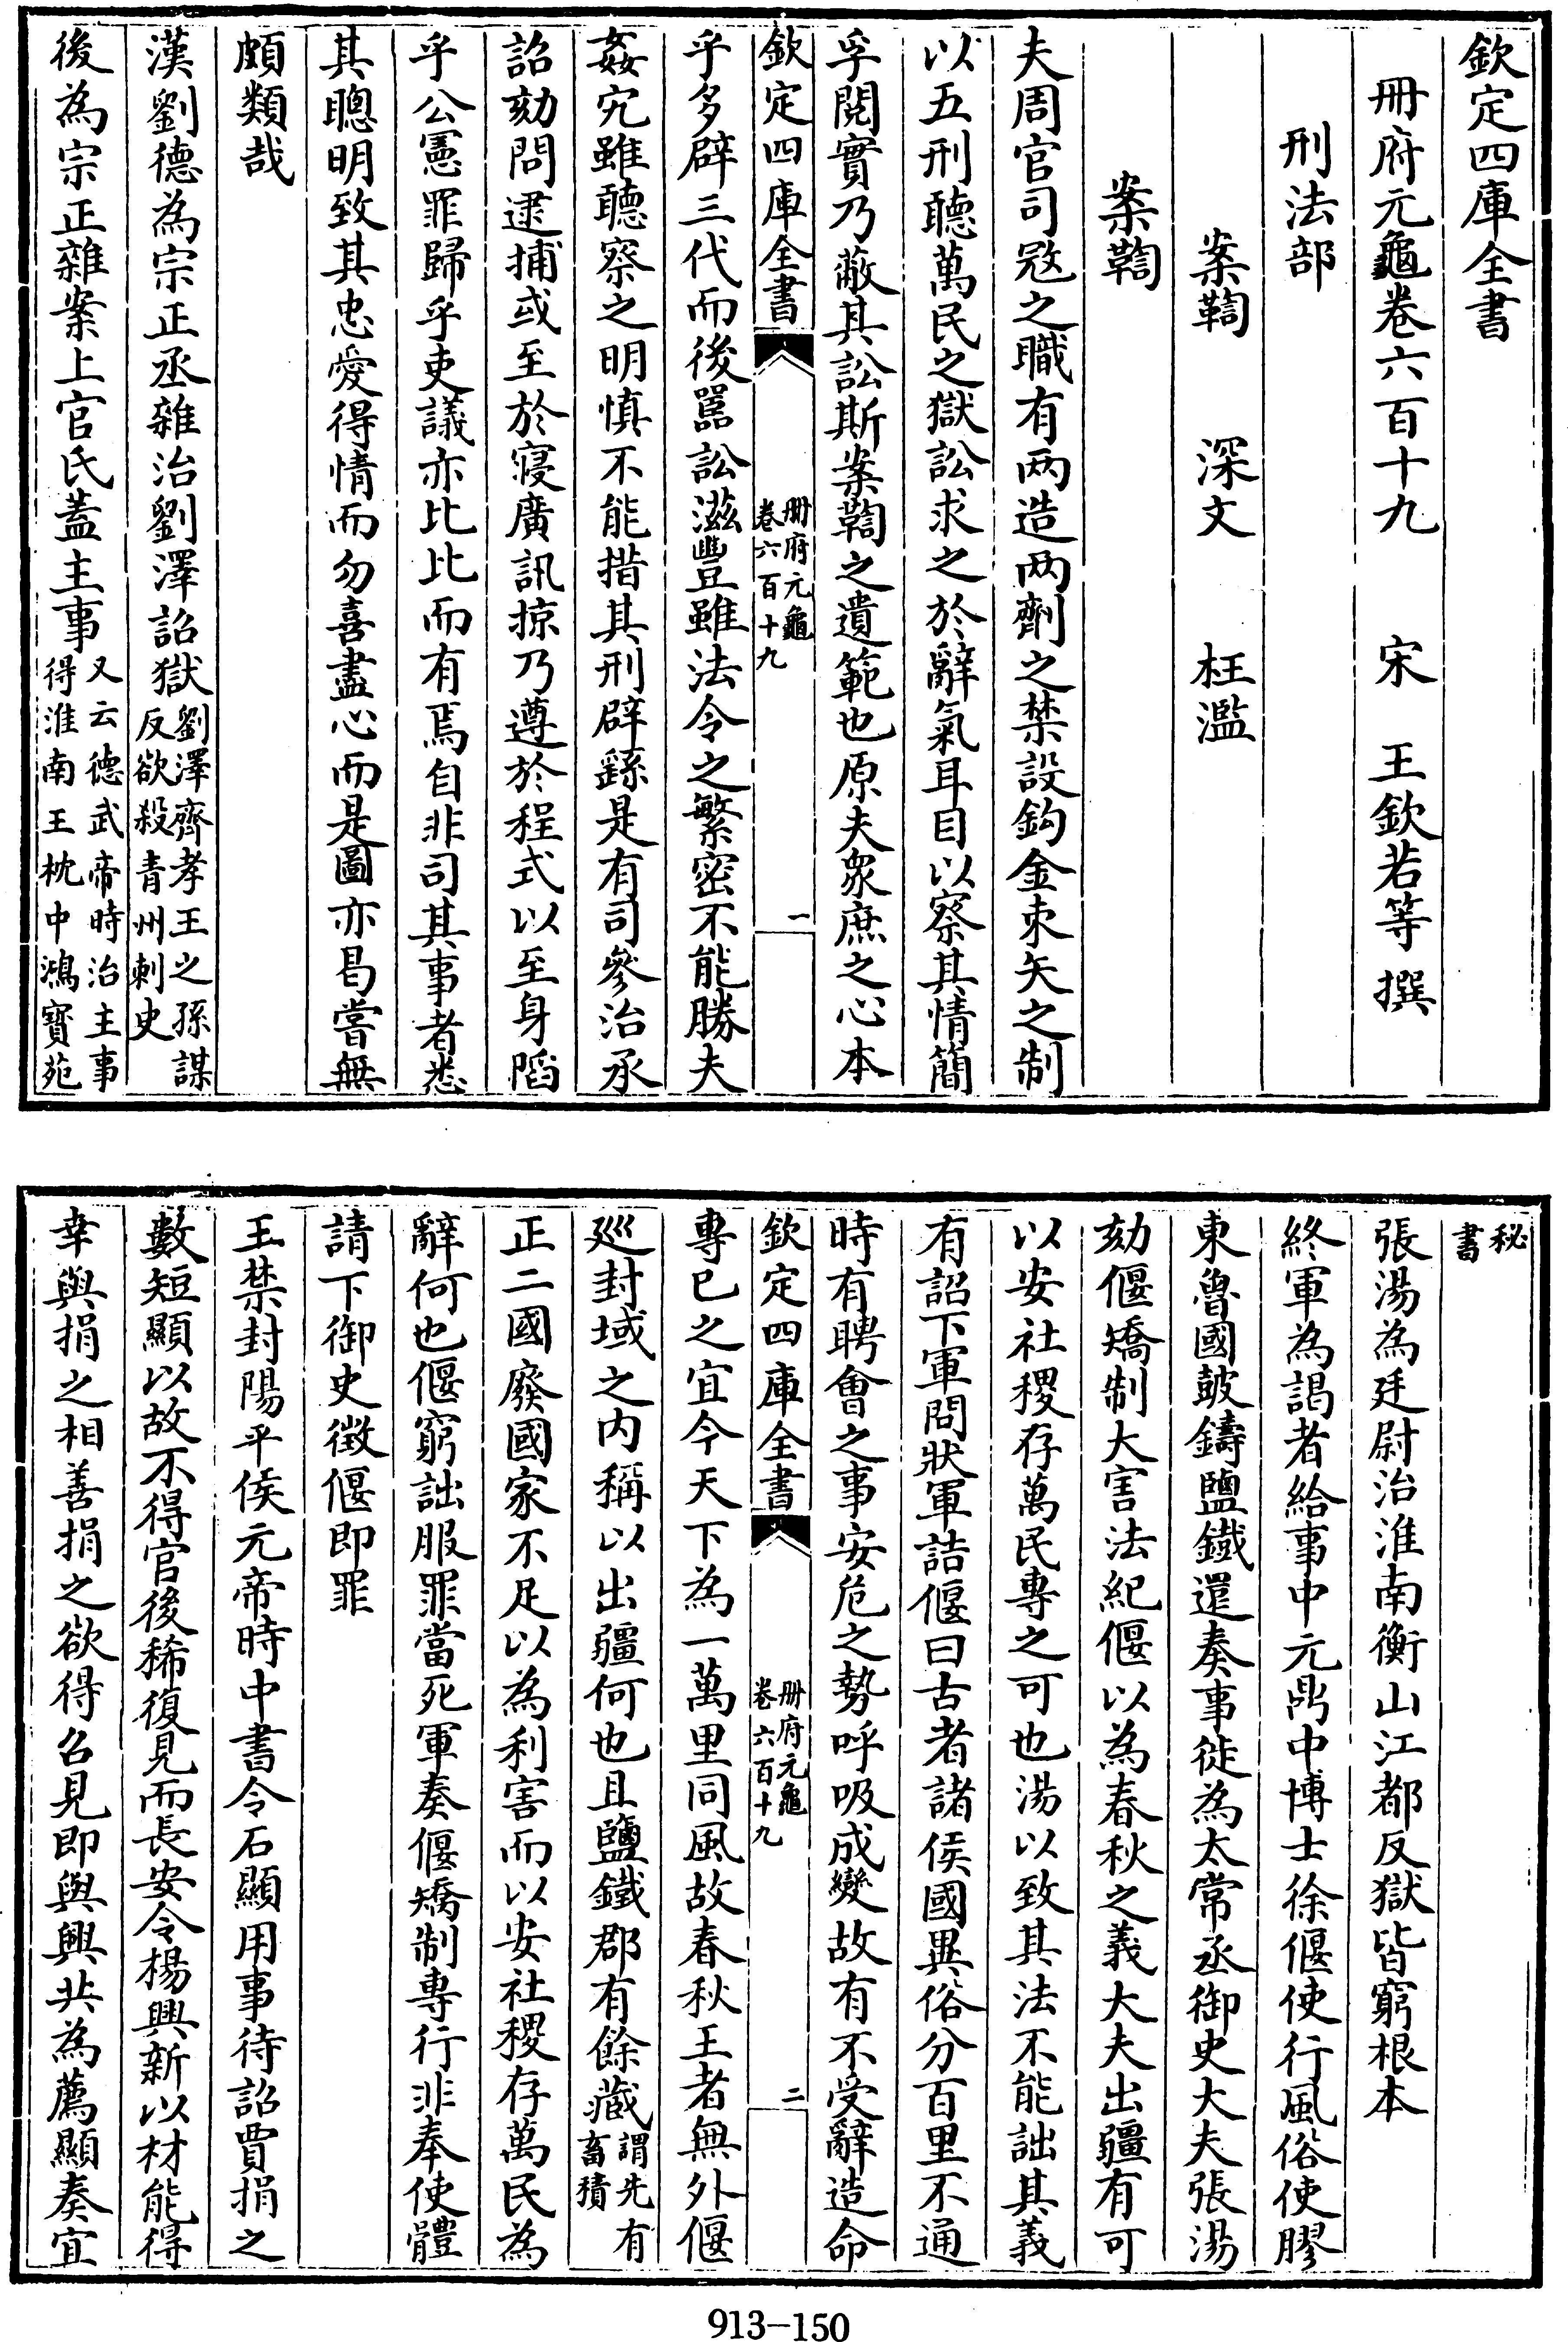 欽定四庫全書
冊府元龜卷六百十九　宋　王欽若等　撰
刑法部
案鞫　深文　枉濫
案鞫
夫周官司㓂之職有两造两劑之禁設鈎金束矢之制
以五刑聽萬民之獄訟求之於辭氣耳目以察其情簡
孚閱實乃蔽其訟斯案鞫之遺範也原夫衆庶之心本
欽定四庫全書
冊府元龜
卷六百十九
一
乎多辟三代而後嚚訟滋豐雖法令之繁密不能勝夫
姦宄雖聽察之明慎不能措其刑辟繇是有司參治承
詔劾問逮捕或至於寖廣訊掠乃遵於程式以至身䧟
乎公憲罪歸乎吏議亦比比而有焉自非司其事者悉
其聰明致其忠愛得情而勿喜盡心而是圖亦曷嘗無
頗類哉
漢劉德為宗正丞雜治劉澤詔獄劉澤齊孝王之孫謀
反欲殺青州刺史
後為宗正雜案上官氏蓋主事又云德武帝時治主事
得淮南王枕中鴻寶苑
秘
書
張湯為廷尉治淮南衡山江都反獄皆窮根本
終軍為謁者給事中元鼎中博士徐偃使行風俗使膠
東魯國鼓鑄鹽鐵還奏事徙為太常丞御史大夫張湯
劾偃矯制大害法紀偃以為春秋之義大夫出疆有可
以安社稷存萬民專之可也湯以致其法不能詘其義
有詔下軍問狀軍詰偃曰古者諸侯國異俗分百里不通
時有聘會之事安危之勢呼吸成變故有不受辭造命
欽定四庫全書
冊府元龜
卷六百十九
二
專已之宜今天下為一萬里同風故春秋王者無外偃
巡封域之内稱以出疆何也且鹽鐵郡有餘藏謂先有
畜積
正二國廢國家不足以為利害而以安社稷存萬民為
辭何也偃窮詘服罪當死軍奏偃矯制專行非奉使體
請下御史徵偃即罪
王禁封陽平侯元帝時中書令石顯用事待詔賈捐之
數短顯以故不得官後稀復見而長安令楊興新以材能得
幸與捐之相善捐之欲得召見即與興共為薦顯奏宜
913-150